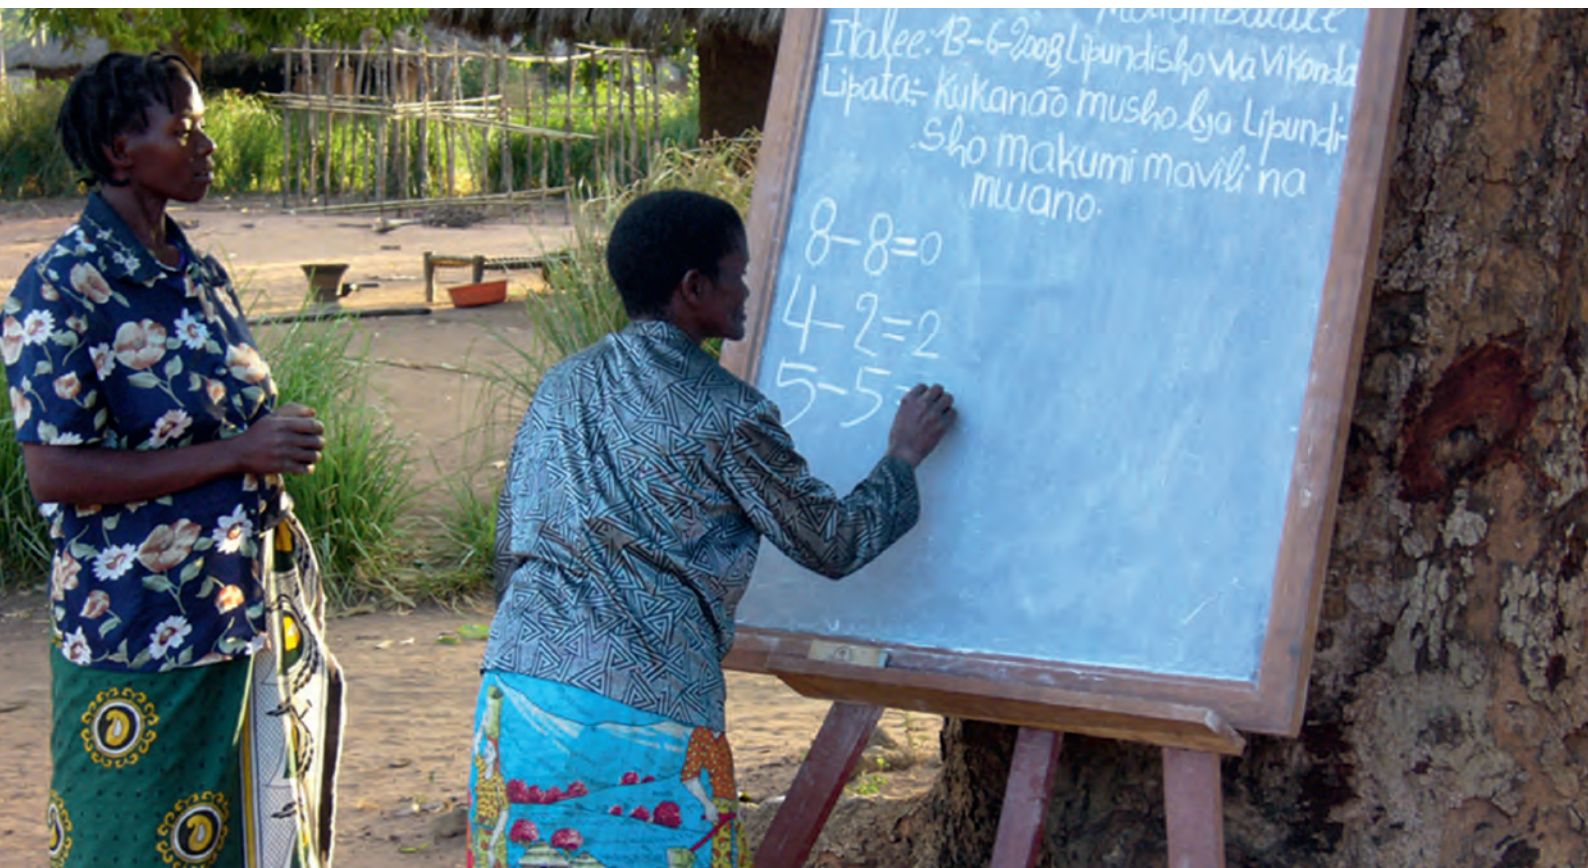 Italee: 13-6-2008 Lipundisho wa Vikonda
Lipata:- Kukanão musho lya Lipundi-
sho makumi mavili na
mwano.
8-8=0
4-2=2
5-5=